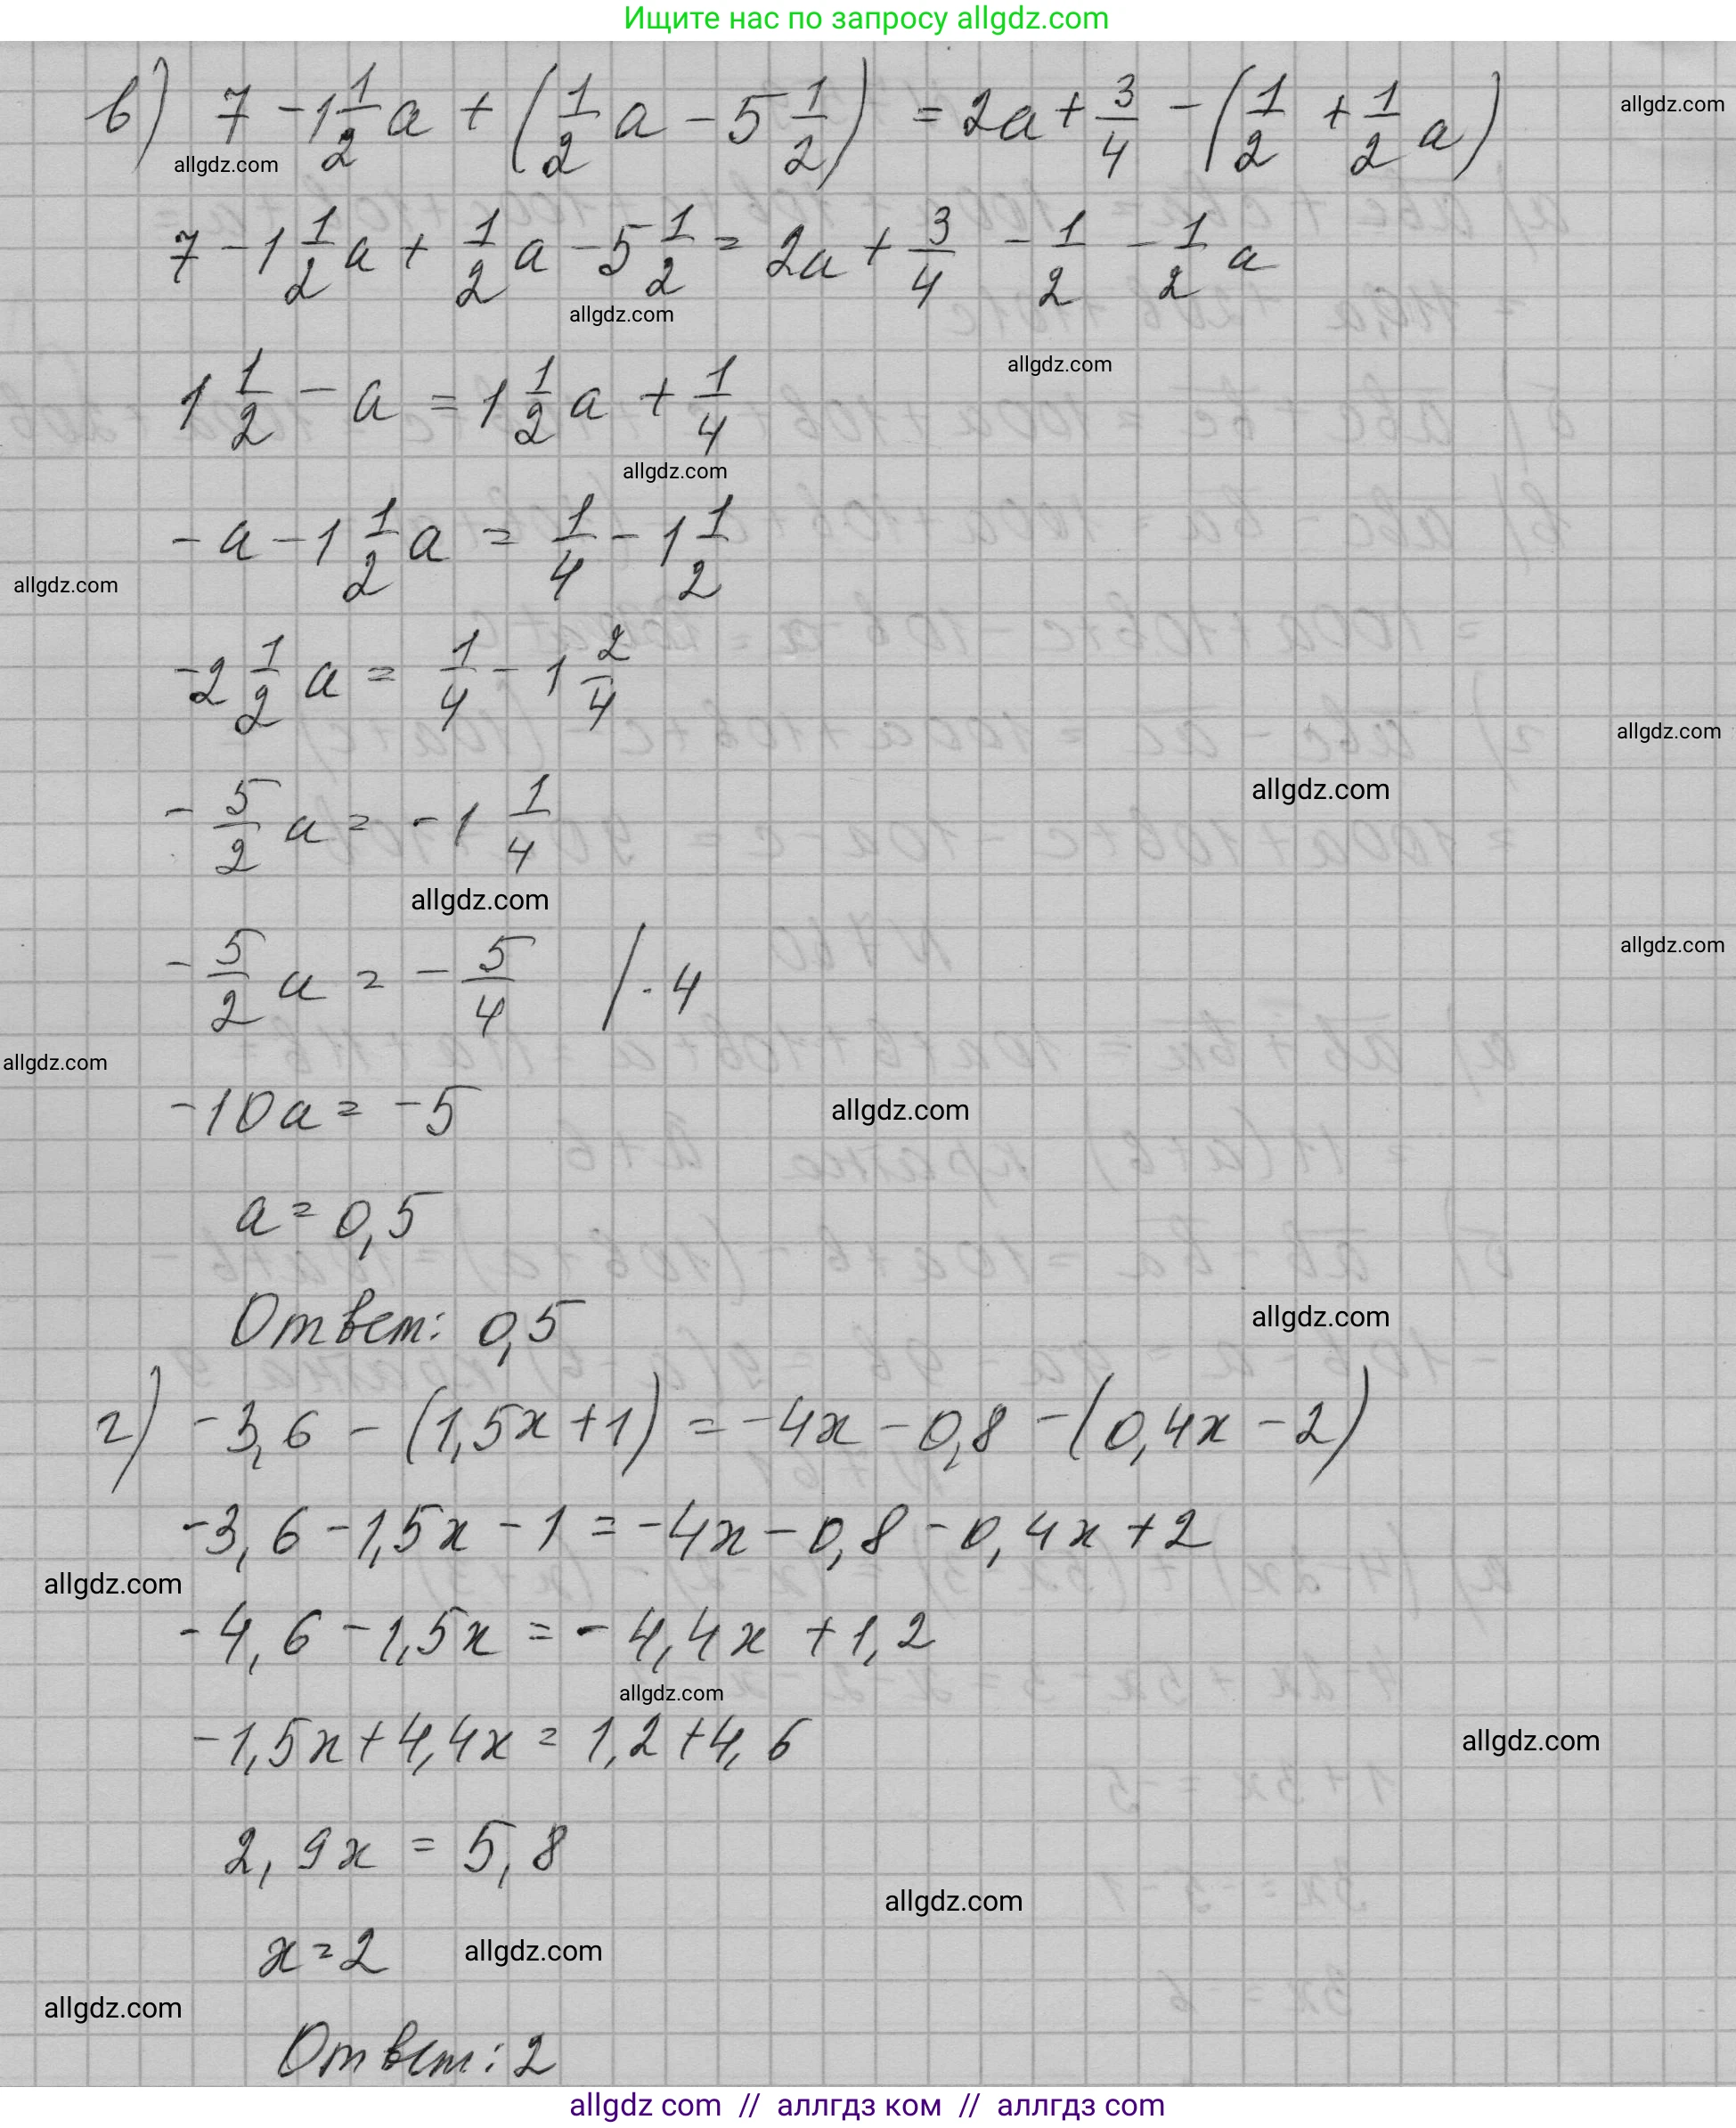 Ищите нас по запросу allgdz.com
в) 7 - 1 1/2 a + (1/2 a - 5 1/2) = 2a + 3/4 - (1/2 + 1/2 a)
allgdz.com
allgdz.com
7 - 1 1/2 a + 1/2 a - 5 1/2 = 2a + 3/4 - 1/2 - 1/2 a
allgdz.com
allgdz.com
1 1/2 - a = 1 1/2 a + 1/4
allgdz.com
-a - 1 1/2 a = 1/4 - 1 1/2
allgdz.com
-2 1/2 a = 1/4 - 1 2/4
allgdz.com
allgdz.com
-5/2 a = -1 1/4
allgdz.com
allgdz.com
-5/2 a = -5/4 | · 4
allgdz.com
-10a = -5
allgdz.com
a = 0,5
Ответ: 0,5
allgdz.com
г) -3,6 - (1,5x + 1) = -4x - 0,8 - (0,4x - 2)
-3,6 - 1,5x - 1 = -4x - 0,8 - 0,4x + 2
allgdz.com
-4,6 - 1,5x = -4,4x + 1,2
allgdz.com
-1,5x + 4,4x = 1,2 + 4,6
allgdz.com
2,9x = 5,8
allgdz.com
x = 2
allgdz.com
allgdz.com
Ответ: 2
allgdz com // аллгдз ком // аллгдз com